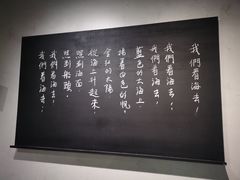 我們看海去！
我們看海去！
我們看海去，
藍色的大海上
揚着白色的帆。
金紅的太陽
從海上升起來，
照到海面
照到船頭。
我們看海去！
我們看海去！